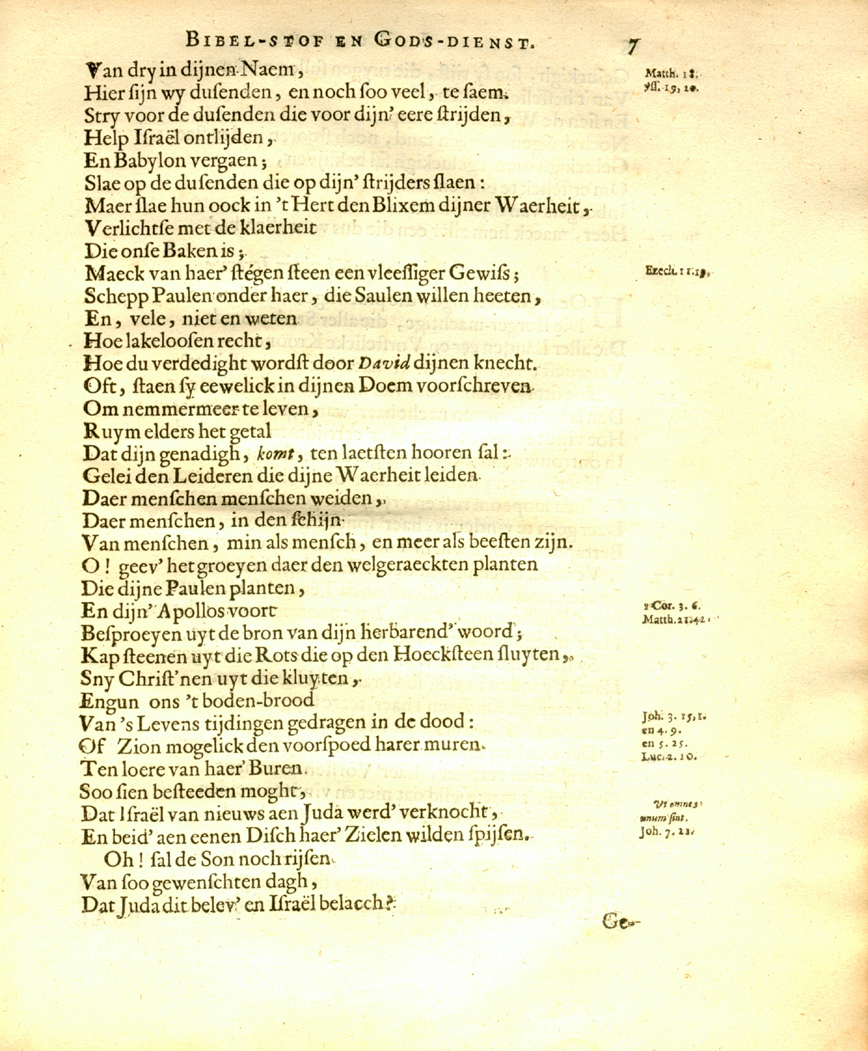 BIBEL-STOF EN GODS-DIENST. 7
Van dry in dijnen Naem,
Matth. 18.
ꝟſſ. 19, 20.
Hier ſijn wy duſenden, en noch ſoo veel, te ſaem.
Stry voor de duſenden die voor dijn' eere ſtrijden,
Help Iſraël ontlijden,
En Babylon vergaen;
Slae op de duſenden die op dijn' ſtrijders ſlaen:
Maer ſlae hun oock in 't Hert den Blixem dijner Waerheit,
Verlichtſe met de klaerheit
Die onſe Baken is;
Maeck van haer' ſtégen ſteen een vleeſſiger Gewiſs;
Ezech. 11. 19.
Schepp Paulen onder haer, die Saulen willen heeten,
En, vele, niet en weten
Hoe lakelooſen recht,
Hoe du verdedight wordſt door David dijnen knecht.
Oft, ſtaen ſy eewelick in dijnen Doem voorſchreven
Om nemmermeer te leven,
Ruym elders het getal
Dat dijn genadigh, komt, ten laetſten hooren ſal:
Gelei den Leideren die dijne Waerheit leiden
Daer menſchen menſchen weiden,
Daer menſchen, in den ſchijn
Van menſchen, min als menſch, en meer als beeſten zijn.
O! geev' het groeyen daer den welgeraeckten planten
Die dijne Paulen planten,
En dijn' Apollos voort
2 Cor. 3. 6.
Matth. 21. 42.
Beſproeyen uyt de bron van dijn herbarend' woord;
Kap ſteenen uyt die Rots die op den Hoeckſteen ſluyten,
Sny Chriſt'nen uyt die kluyten,
Engun ons 't boden-brood
Van 's Levens tijdingen gedragen in de dood:
Joh. 3. 15, 1.
en 4. 9.
en 5. 25.
Luc. 2. 10.
Of Zion mogelick den voorſpoed harer muren
Ten loere van haer' Buren
Soo ſien beſteeden moght,
Dat Iſraël van nieuws aen Juda werd' verknocht,
Vt omnes
unum ſint.
Joh. 7. 21.
En beid' aen eenen Diſch haer' Zielen wilden ſpijſen.
Oh! ſal de Son noch rijſen
Van ſoo gewenſchten dagh,
Dat Juda dit belev' en Iſraël belacch?
Ge-